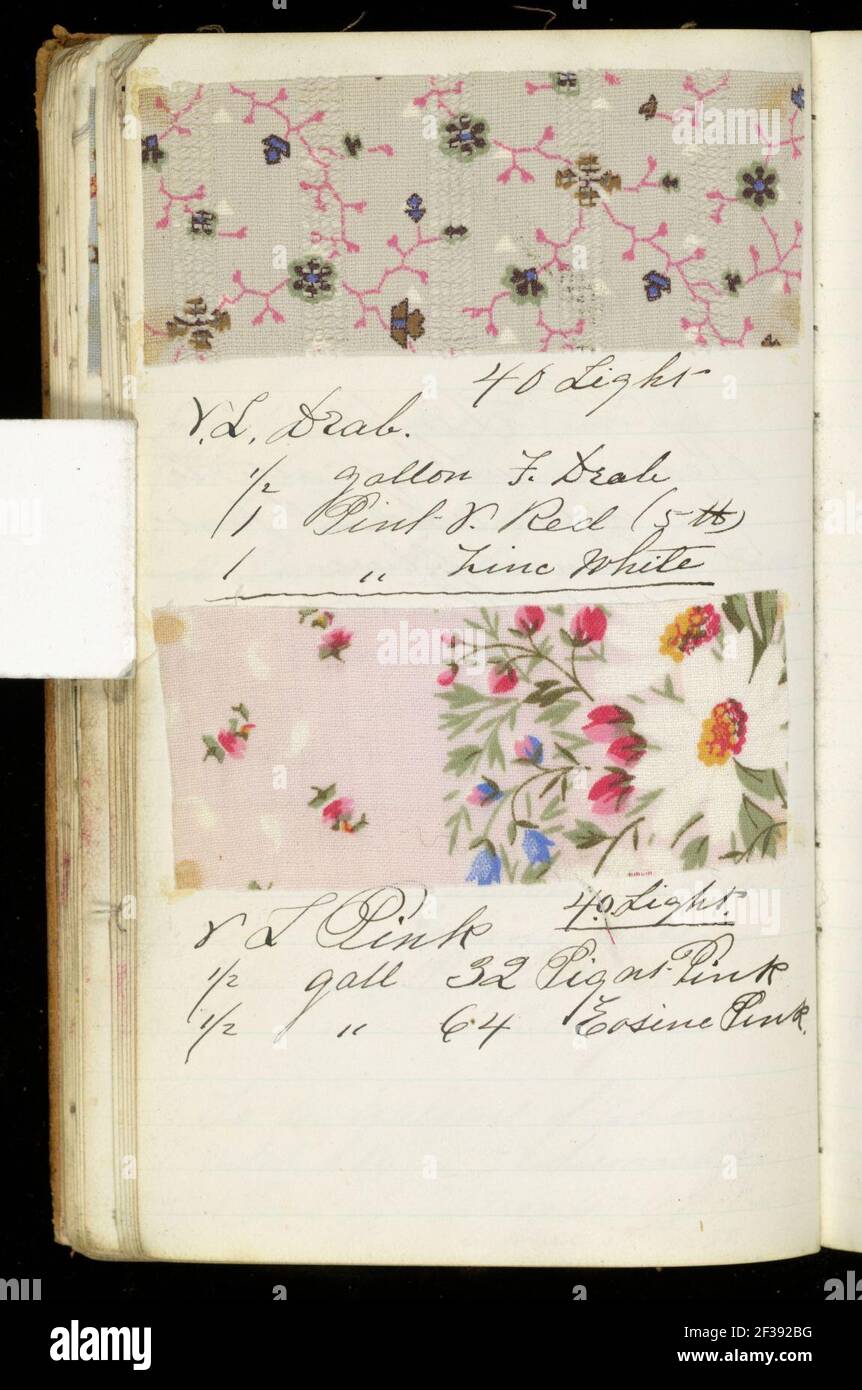 40 Light
V. L. Drab.
1/2 gallon F. Drab
1 Pint V. Red (5 lb)
1 " Zinc White
40 Light.
V L Pink
1/2 gall 32 Pigmt Pink
1/2 " 64 Eosine Pink.
alamy
Image ID: 2F392BG
www.alamy.com